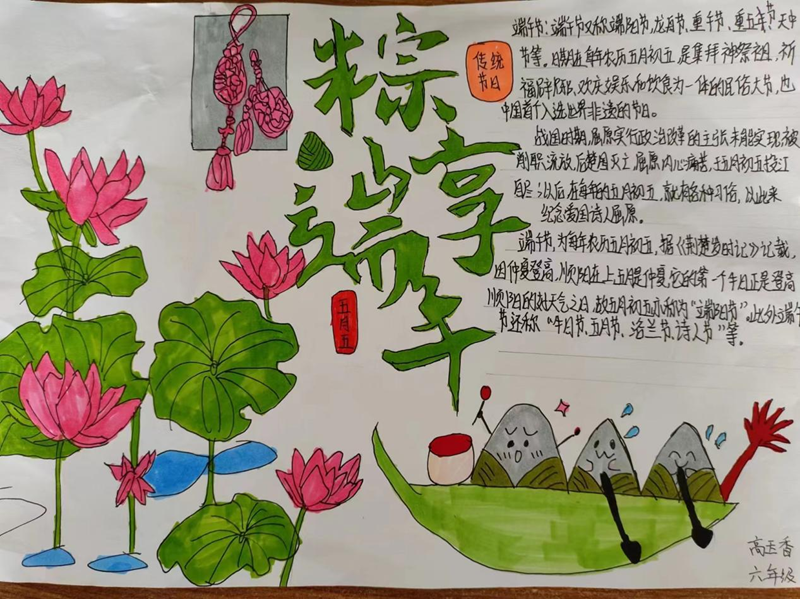 粽享
端午
传统
节日
五月五
端午节：端午节又称端阳节，龙舟节，重午节，重五节，天中
节等。日期在每年农历五月初五，是集拜神祭祖，祈
福辟邪，欢庆娱乐和饮食为一体的民俗大节，也
中国首个入选世界非遗的节日。
战国时期，屈原实行政治改革的主张未能实现，被
削职流放，后楚国灭亡，屈原内心痛苦，于五月初五投江
自尽，以后在每年的五月初五，就有各种习俗，以此来
纪念爱国诗人屈原。
端午节，为每年农历五月初五，据《荆楚岁时记》记载，
因仲夏登高，顺阳在上五月是仲夏，它的第一个午日正是登高
顺阳的好天气之日，故五月初五亦称为“端阳节”。此外端午
节还称“午日节，五月节，浴兰节，诗人节”等。
高玉香
六年级